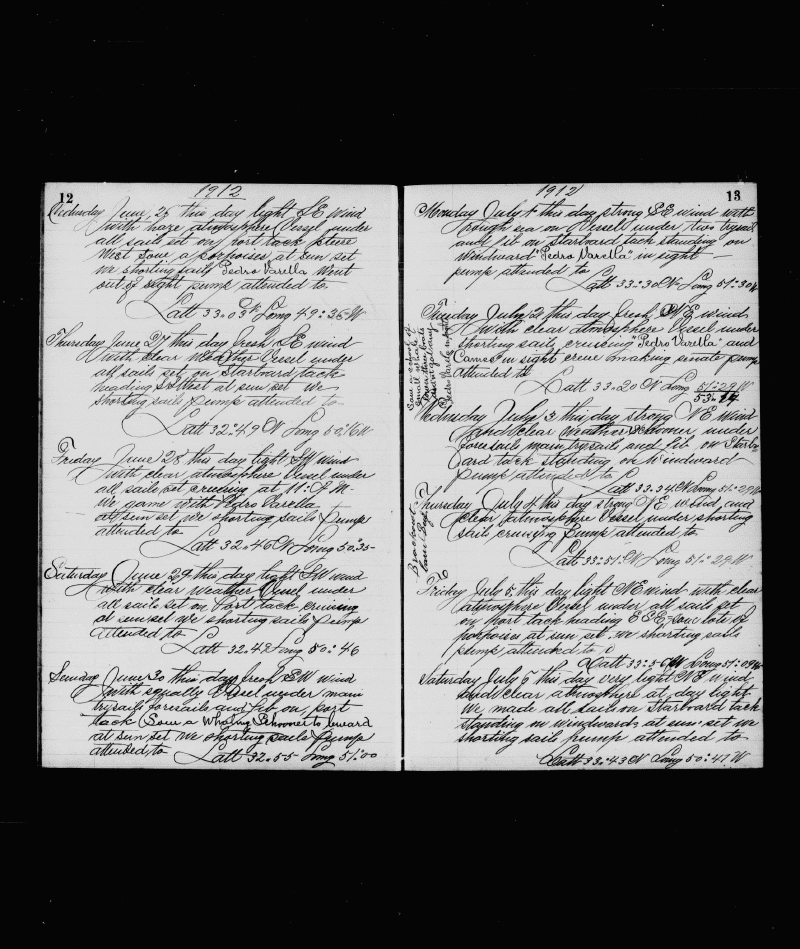 12
1912
Wednesday June, 26 this day light SE wind
with haze atmosphere Vessel under
all sails set on port tack
sow a porpoises at sun set
we shorting sails Pedro Varella went
out of sight pump attended to
Latt 33.03 N Long 49:35 W
Thursday June, 27 this day fresh SE wind
with clear Vessel under
all sails set on Starboard tack
heading at sun set we
shorting sails pump attended to
Latt 32:49 N Long 50:16 W
Friday June 28 this day light SW wind
with clear atmosphere Vessel under
all sails set cruising at
we game with Pedro Varella
at sun set we shorting sails Pump
attended to
Latt 32.46 N Long 50:35
Saturday June 29 this day light SW wind
with clear weather Vessel under
all sails set on Port tack cruising
at sun set we shorting sails Pump
attended to
Latt 32.42 Long 50:46
Sunday June 30 this day fresh SW wind
with squally Vessel under main
trysails foresails and jib on port
tack Sow a Whaling Schooner to leward
at sun set we shorting sails Pump
attended to Latt 32.55 Long 51:00
13
1912
Monday July 1 this day strong SE wind with
rough sea on Vessell under two trysails
and jib on starboard tack standing on
windward "Pedro Varella" in sight
pump attended to
Latt 33:30 N Long 51:30 W
Tuesday July 2 this day fresh NE wind
with clear atmosphere Vessel under
shorting sails cruising "Pedro Varella" and
"Cameo" in sight crew making senate pump
attended to
Latt 33.20 N Long 51:29 W
53.14
Wednesday July 3 this day strong NE wind
and clear weather schooner, under
foresails main trysails and jib on Starbo
ard tack standing on windward
pump attended to
Latt 33.34 N Long 51:29 W
Thursday July 4 this day strong NE wind and
clear atmosphere Vessel under shorting
sails cruising pump attended to
Latt 33:51 N Long 51:29 W
Friday July 5, this day light NE wind with clear
atmosphere Vessel under all sails set
on port tack heading ESE sow lots of
porpoises at sun set we shorting sails
pump attended to
Latt 33:56 N Long 51:09 W
Saturday July 6 this day very light NE wind
and clear atmosphere at day light
we made all sails on starboard tack
standing on windward at sun set we
shorting sails pump attended to
Latt 33.43 N Long 50:47 W